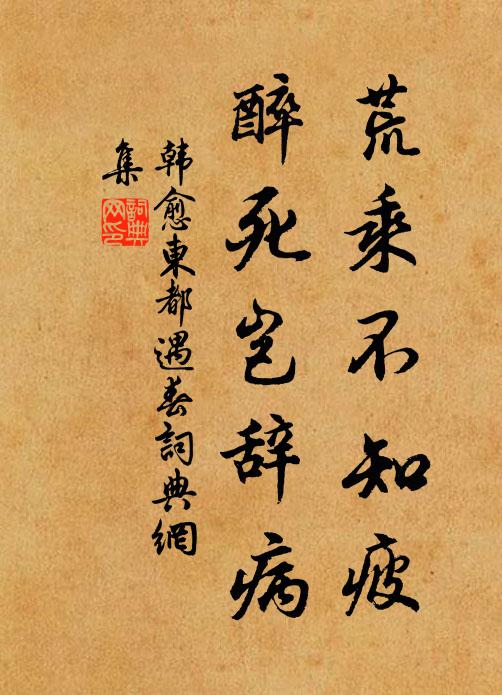 荒乘不知疲
醉死岂辞病
韩愈東都遇春詞典網
集
詞典
网印